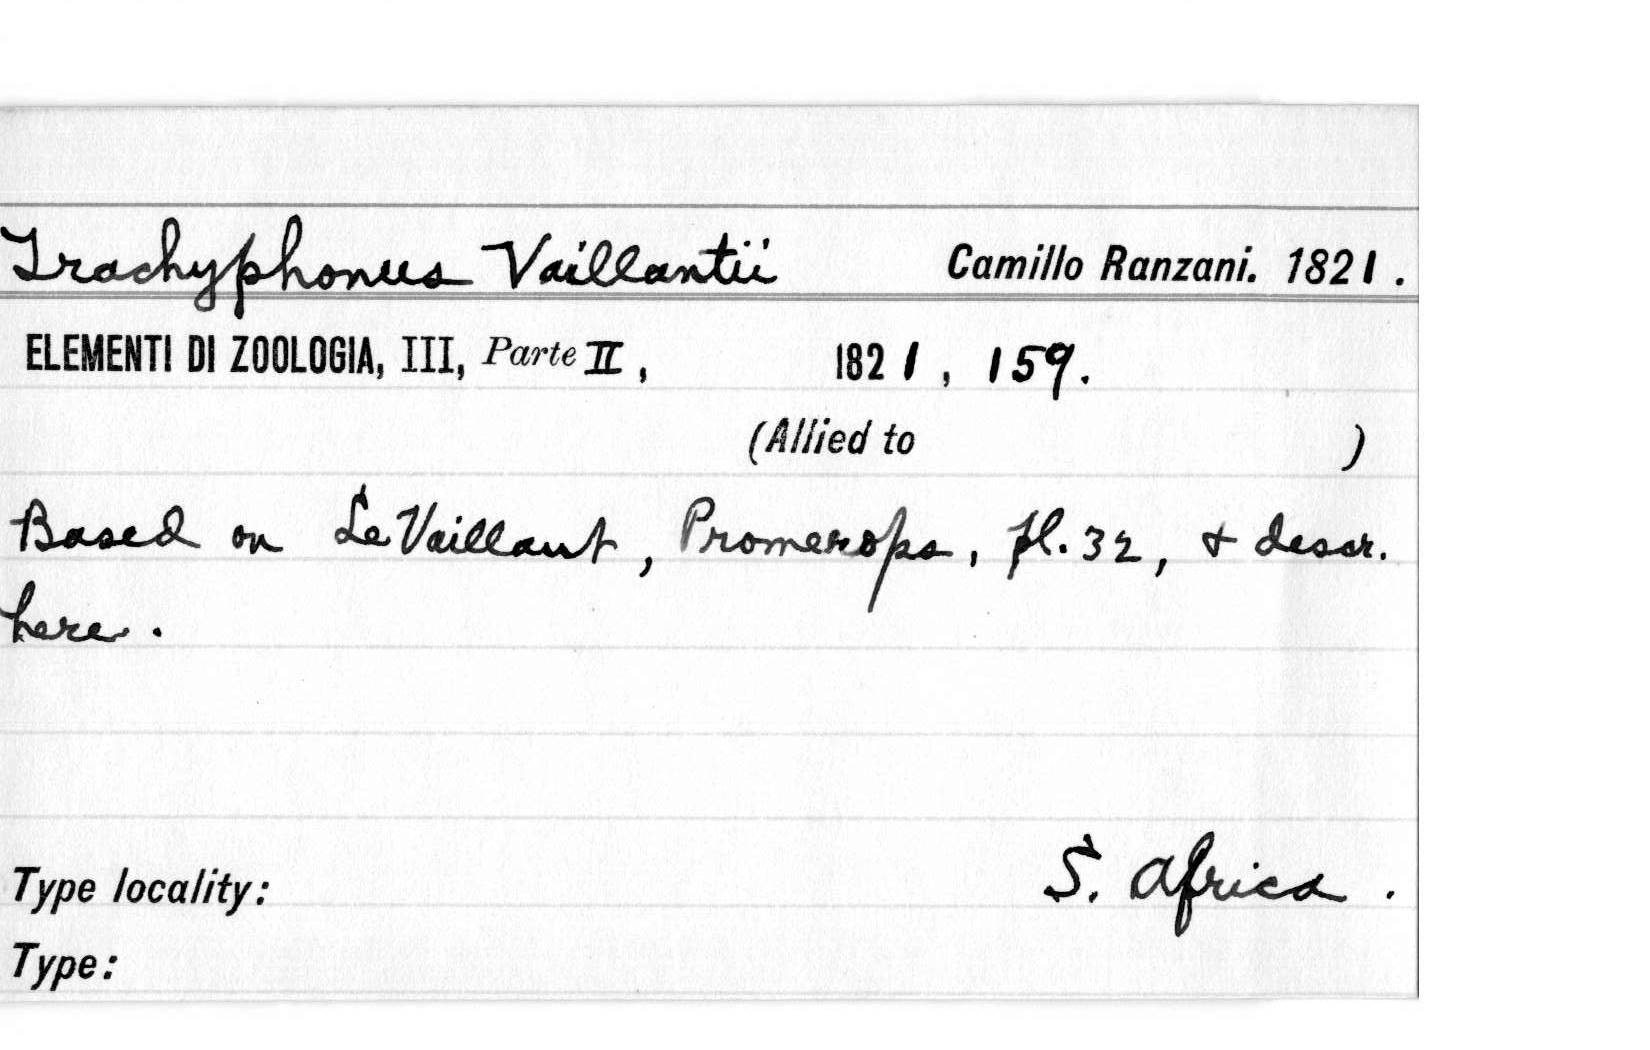 Trachyphonus Vaillantii Camillo Ranzani. 1821.
ELEMENTI DI ZOOLOGIA, III, Parte II, 1821, 159.
(Allied to )
Based on Le Vaillant, Promerops, pl. 32, & descr.
here.
Type locality: S. Africa.
Type: